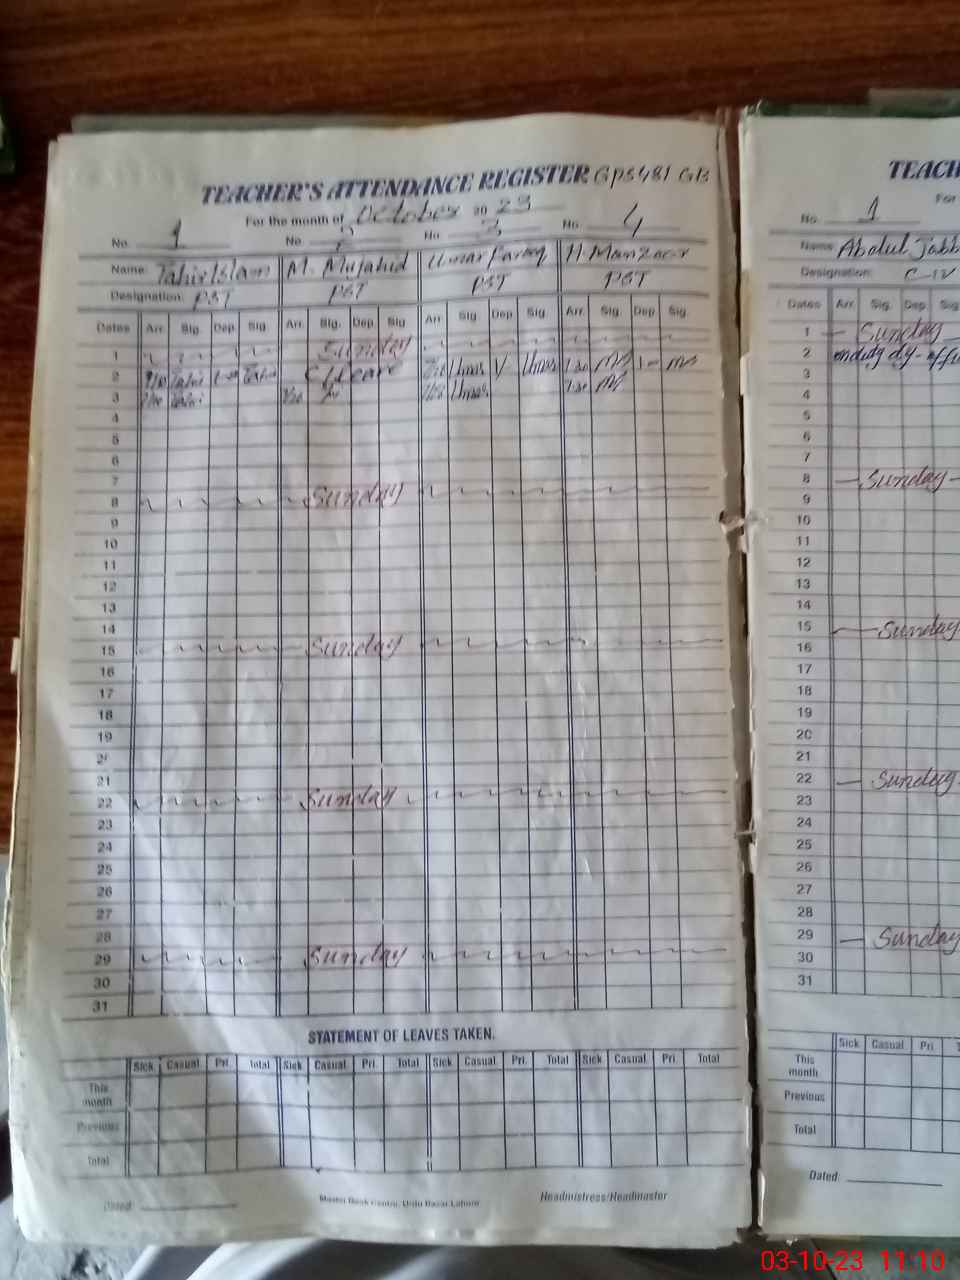 TEACHER'S ATTENDANCE REGISTER GPS 481 GB
For the month of October 2023
No. 1 No. 2 No. 3 No. 4
Name: Tahir Islam M. Mujahid Umar Farooq H. Manzoor
Designation: PST PST PST PST
Dates Arr. Sig. Dep. Sig. Arr. Sig. Dep. Sig. Arr. Sig. Dep. Sig. Arr. Sig. Dep. Sig.
1 Sunday
2 Tahir Tahir C/Leave Umar Umar
3 Umar
4
5
6
7
8 Sunday
9
10
11
12
13
14
15 Sunday
16
17
18
19
20
21
22 Sunday
23
24
25
26
27
28
29 Sunday
30
31
STATEMENT OF LEAVES TAKEN.
Sick Casual Pri. Total Sick Casual Pri. Total Sick Casual Pri. Total Sick Casual Pri. Total
This month
Previous
Total
Dated:
Master Book Centre, Urdu Bazar Lahore
Headmistress/Headmaster
TEACH
For
No. 1
Name: Abdul Jabb
Designation: C-IV
Dates Arr. Sig. Dep. Sig
1 Sunday
2 on duty dy-offi
3
4
5
6
7
8 Sunday
9
10
11
12
13
14
15 Sunday
16
17
18
19
20
21
22 Sunday
23
24
25
26
27
28
29 Sunday
30
31
Sick Casual Pri. T
This month
Previous
Total
Dated
03-10-23 11:10